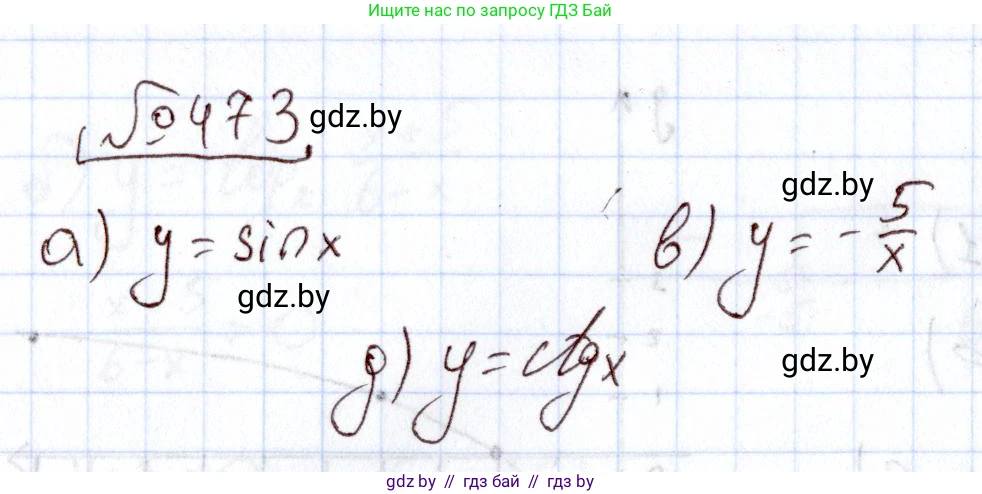 Ищите нас по запросу ГДЗ Бай
№ 473 gdz.by
gdz.by
а) y = sin x в) y = - 5/x
gdz.by
д) y = ctg x gdz.by
gdz.by // гдз бай // гдз by